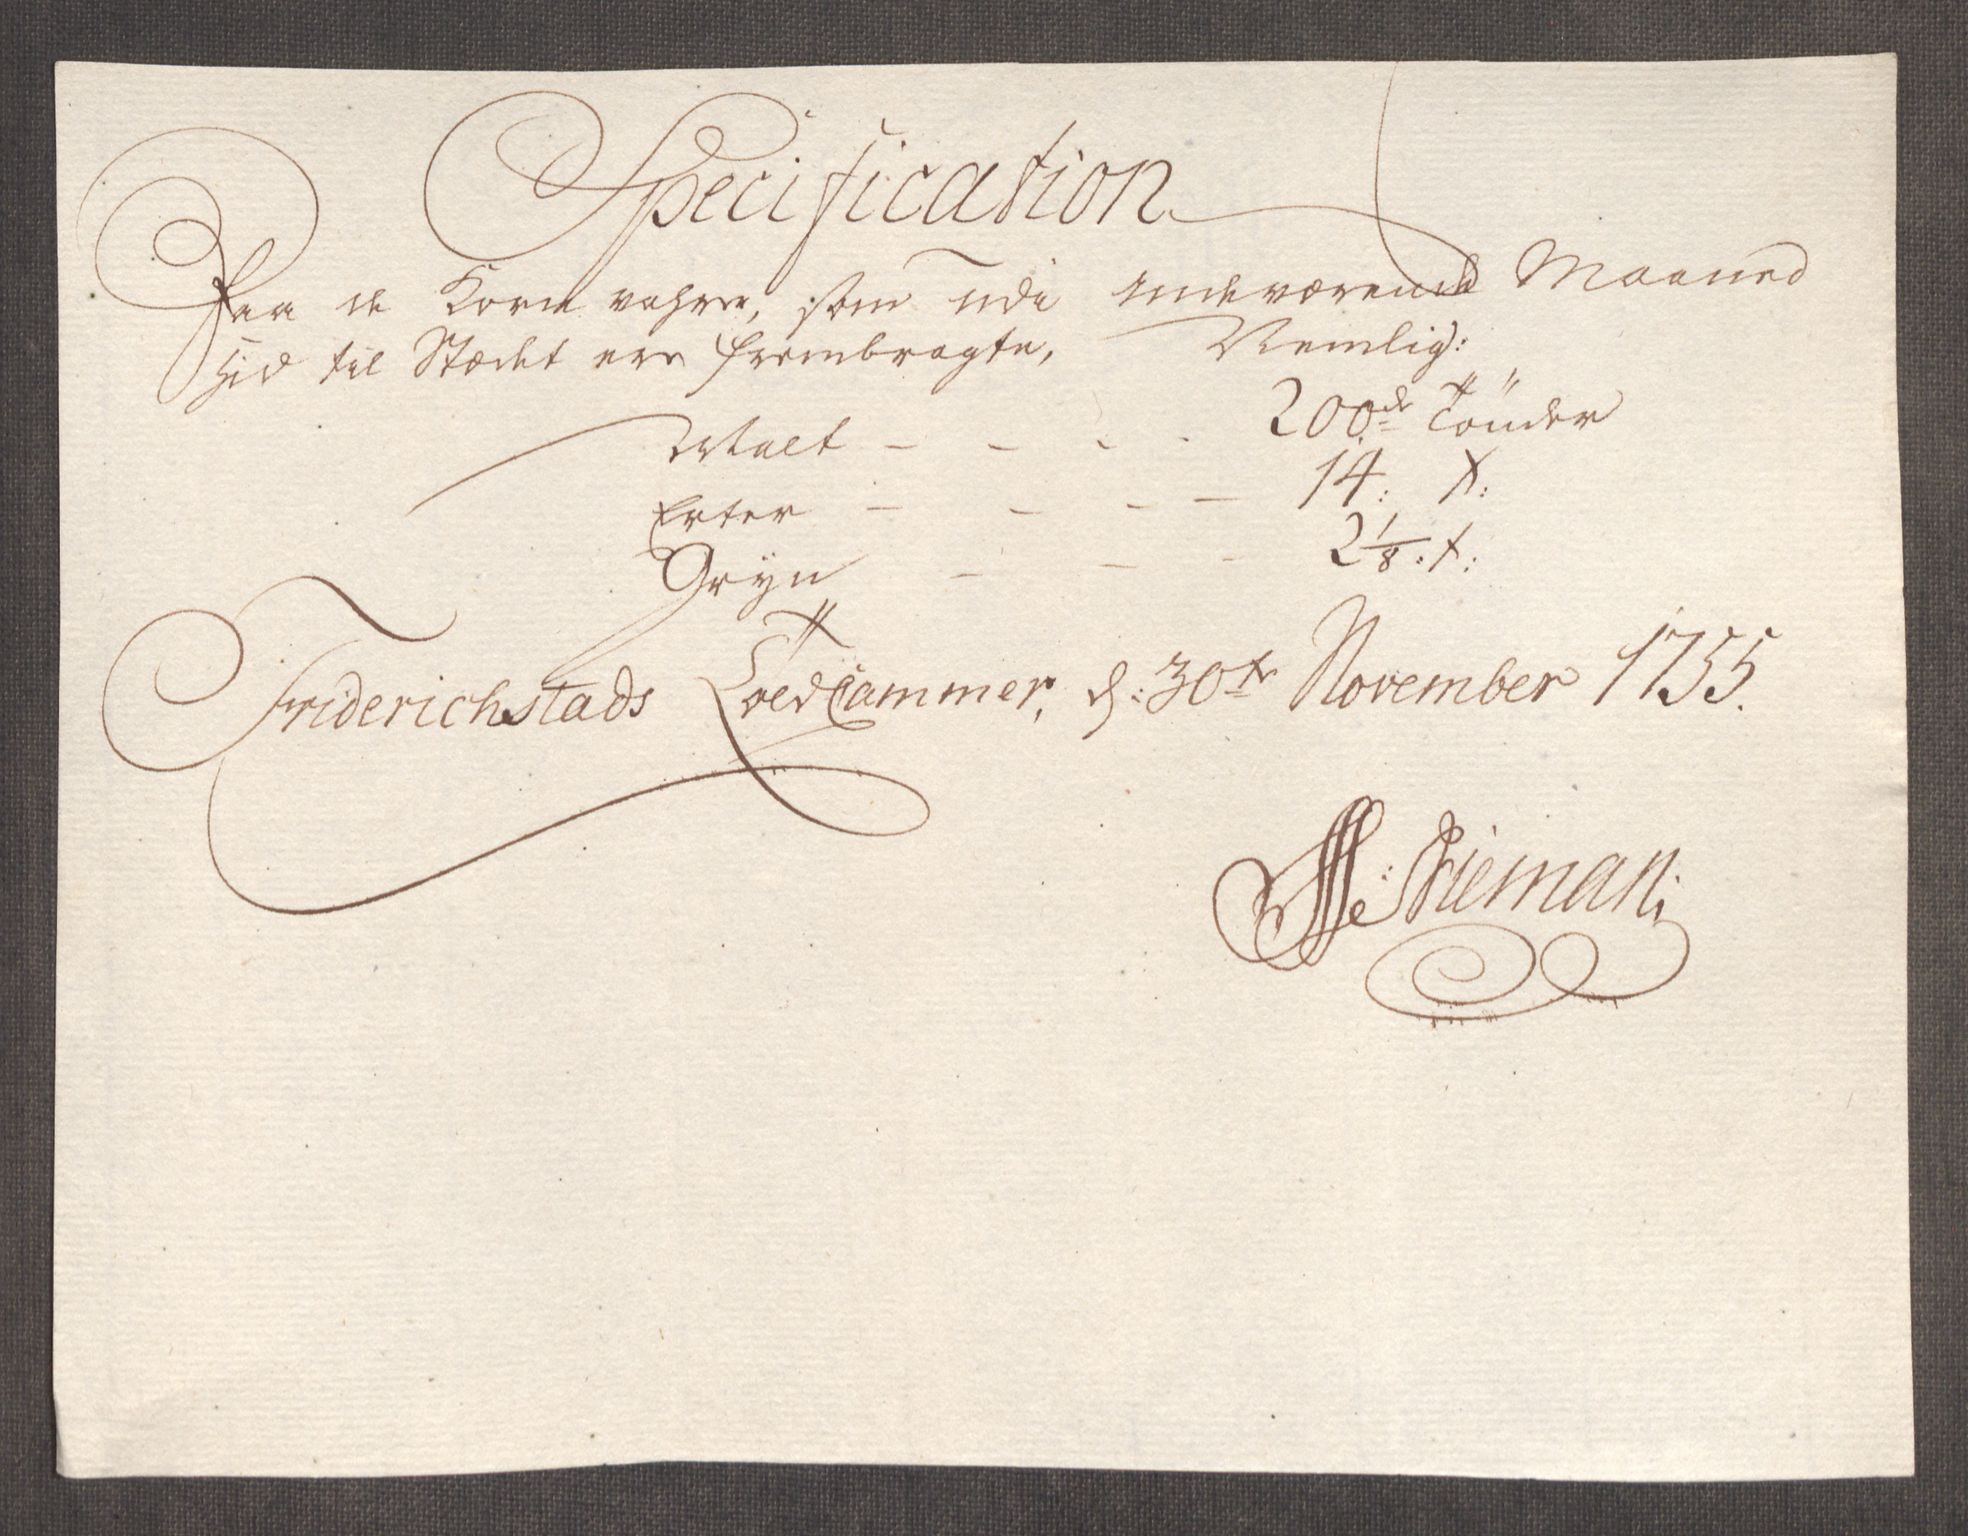 Specification
Paa de Korn vahrer, som udi indeværende Maaned
hid til Stædet ere frembragte, Nemlig:
Malt - - - - 200de Tønder
Erter - - - - 14: t:
Gryn - - - 2 1/8: t:
Friderichstads ToldCammer, d: 30te November 1755.
Nieman: